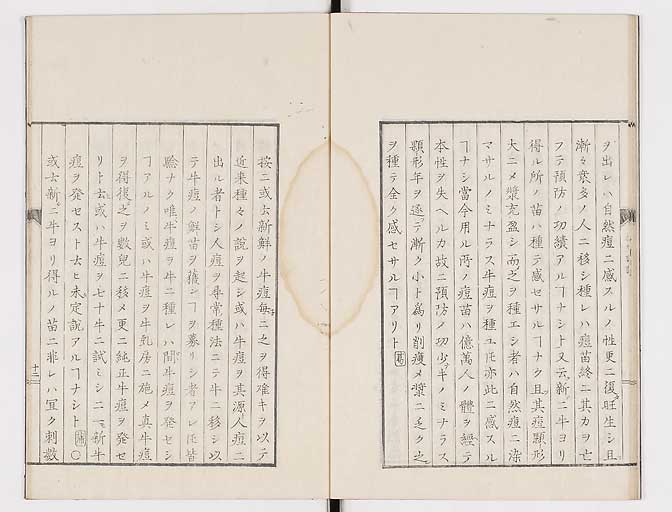 ヲ出レハ自然痘ニ感スルノ性更ニ復旺生シ且
漸々衆多ノ人ニ移シ種レハ痘苗終ニ其力ヲ亡
フテ預防ノ功績アルヿナシト又云新ニ牛ヨリ
得ル所ノ苗ハ種テ感セサルヿナク且其痘顆形
大ニメ漿充盈シ而之ヲ種エシ者ハ自然痘ニ染
マサルノミナラス牛痘ヲ種ユ𪜈亦此ニ感スル
ヿナシ當今用ル所ノ痘苗ハ億萬人ノ體ヲ經テ
本性ヲ失ヘルカ故ニ預防ノ功少キノミナラス
顆形年ヲ逐テ漸ク小ト為リ削痩メ漿ニ乏ク之
ヲ種テ全ク感セサルヿアリト
按ニ或云新鮮ノ牛痘毎ニ之ヲ得難キヲ以テ
近来種々ノ説ヲ起シ或ハ牛痘ヲ其源人痘ニ
出ル者トシ人痘ヲ尋常種法ニテ牛ニ移シ以
テ牛痘ノ鮮苗ヲ獲シヿヲ募リシ者アレ𪜈皆
驗ナク唯牛痘ヲ牛ニ種レハ間牛痘ヲ發セシ
ヿアルノミ或ハ牛痘ヲ牛乳房ニ施メ真牛痘
ヲ得復之ヲ數兒ニ移メ更ニ純正牛痘ヲ發セ
リト云或ハ牛痘ヲ七十牛ニ試ミシニ一新牛
痘ヲ發セスト云ヒ未定説アルヿナシト ○
或云新ニ牛ヨリ得ルノ苗ニ非レハ冝ク刺數
十二